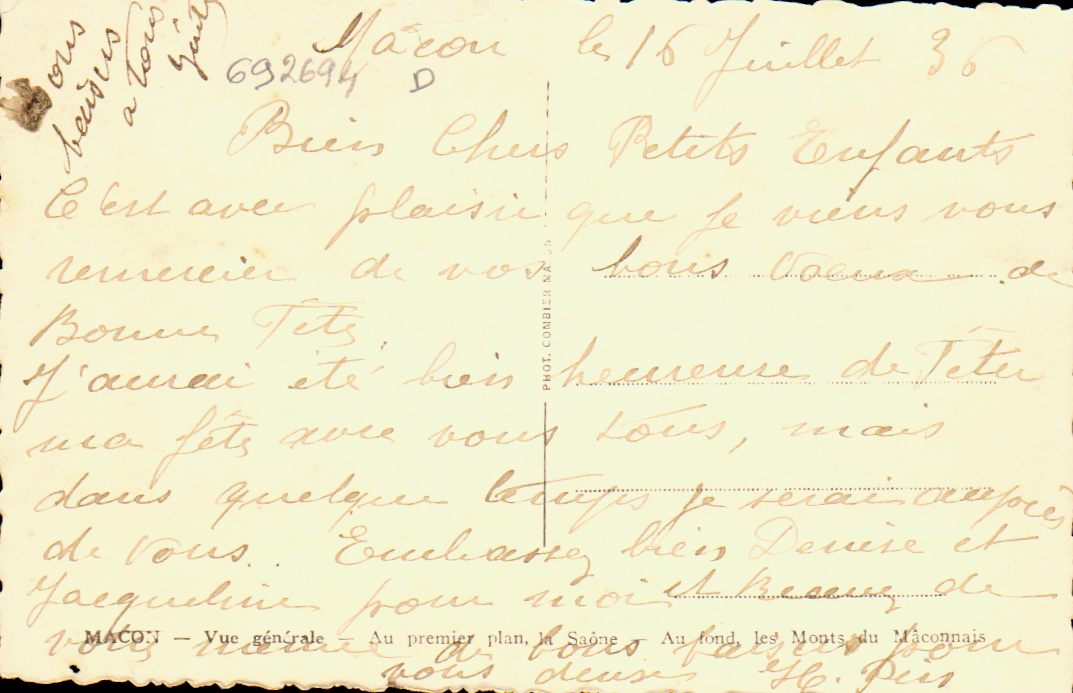 Mâcon le 16 Juillet 36
692694 D
Bien Chers Petits Enfants
C'est avec plaisir que je viens vous
remercier de vos bons Voeux de
Bonne Fête.
J'aurai été bien heureuse de Fêter
ma fête avec vous tous, mais
dans quelque temps je serai auprès
de vous. Embassez bien Denise et
Jacqueline pour moi et Recevez de
votre mémé de bons baisers pour
vous deux H.
bons
baisers
a tous
PHOT. COMBIER MACON
MACON — Vue générale — Au premier plan, la Saône — Au fond, les Monts du Mâconnais